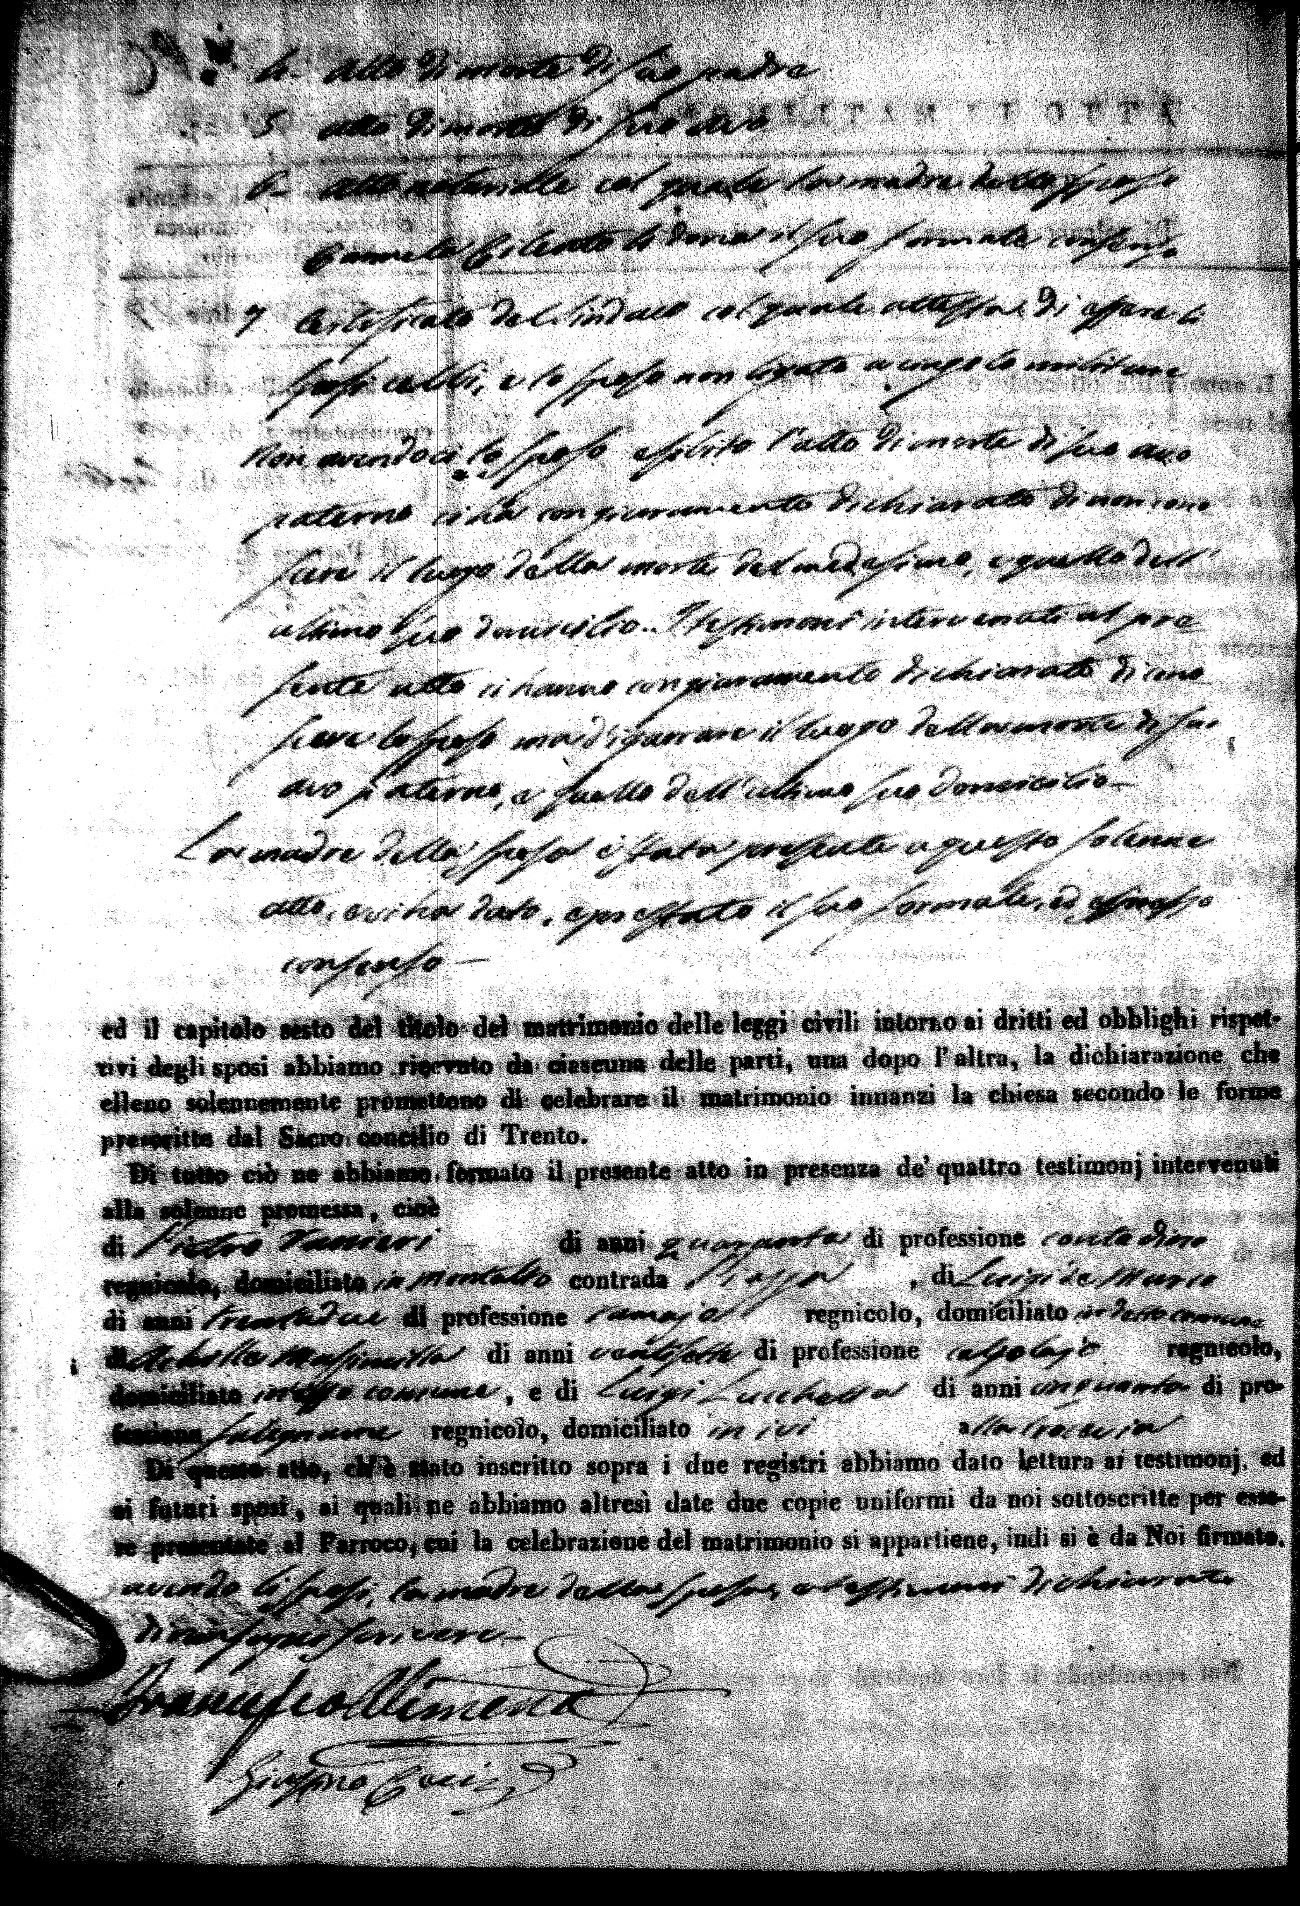 4. atto di morte di suo padre
5 atto di morte di suo avo
6. atto notarile col quale la madre dello sposo
Carmela Cilento dà il suo formale consenso
7 Certificato del Sindaco col quale attesta di essere li
sposi celibi, e lo sposo non ligato a vincolo militare
Non avendoci lo sposo esibito l'atto di morte di suo avo
paterno ci ha con giuramento dichiarato di non cono
scere il luogo della morte del medesimo, e quello dell'
ultimo suo domicilio. I testimoni intervenuti al pre=
sente atto ci hanno con giuramento dichiarato di cono
scere lo sposo ma d'ignorare il luogo della morte di suo
avo paterno, e quello dell'ultimo suo domicilio—
La madre della sposa è stata presente a questo solenne
atto, e vi ha dato, e prestato il suo formale, ed espresso
consenso —
ed il capitolo sesto del titolo del matrimonio delle leggi civili intorno ai dritti ed obblighi rispet-
tivi degli sposi abbiamo ricevuto da ciascuna delle parti, una dopo l'altra, la dichiarazione che
elleno solennemente promettono di celebrare il matrimonio innanzi la chiesa secondo le forme
prescritte dal Sacro concilio di Trento.
Di tutto ciò ne abbiamo formato il presente atto in presenza de' quattro testimonj intervenuti
alla solenne promessa, cioè
di Pietro Ranieri di anni quaranta di professione contadino
regnicolo, domiciliato in Montalto contrada Piazza, di Luigi de Marco
di anni trentadue di professione regnicolo, domiciliato in detto comune
di Achille di anni ventisette di professione calzolajo regnicolo,
domiciliato in esso comune, e di Luigi Lucchetta di anni cinquanta di pro-
fessione falegname regnicolo, domiciliato in ivi
Di questo atto, ch'è stato inscritto sopra i due registri abbiamo dato lettura ai testimonj, ed
ai futuri sposi, ai quali ne abbiamo altresì date due copie uniformi da noi sottoscritte per esse-
re presentate al Parroco, cui la celebrazione del matrimonio si appartiene, indi si è da Noi firmato.
avendo li sposi, la madre della sposa, e testimoni dichiarato
di non sapere scrivere—
Francesco Alimena